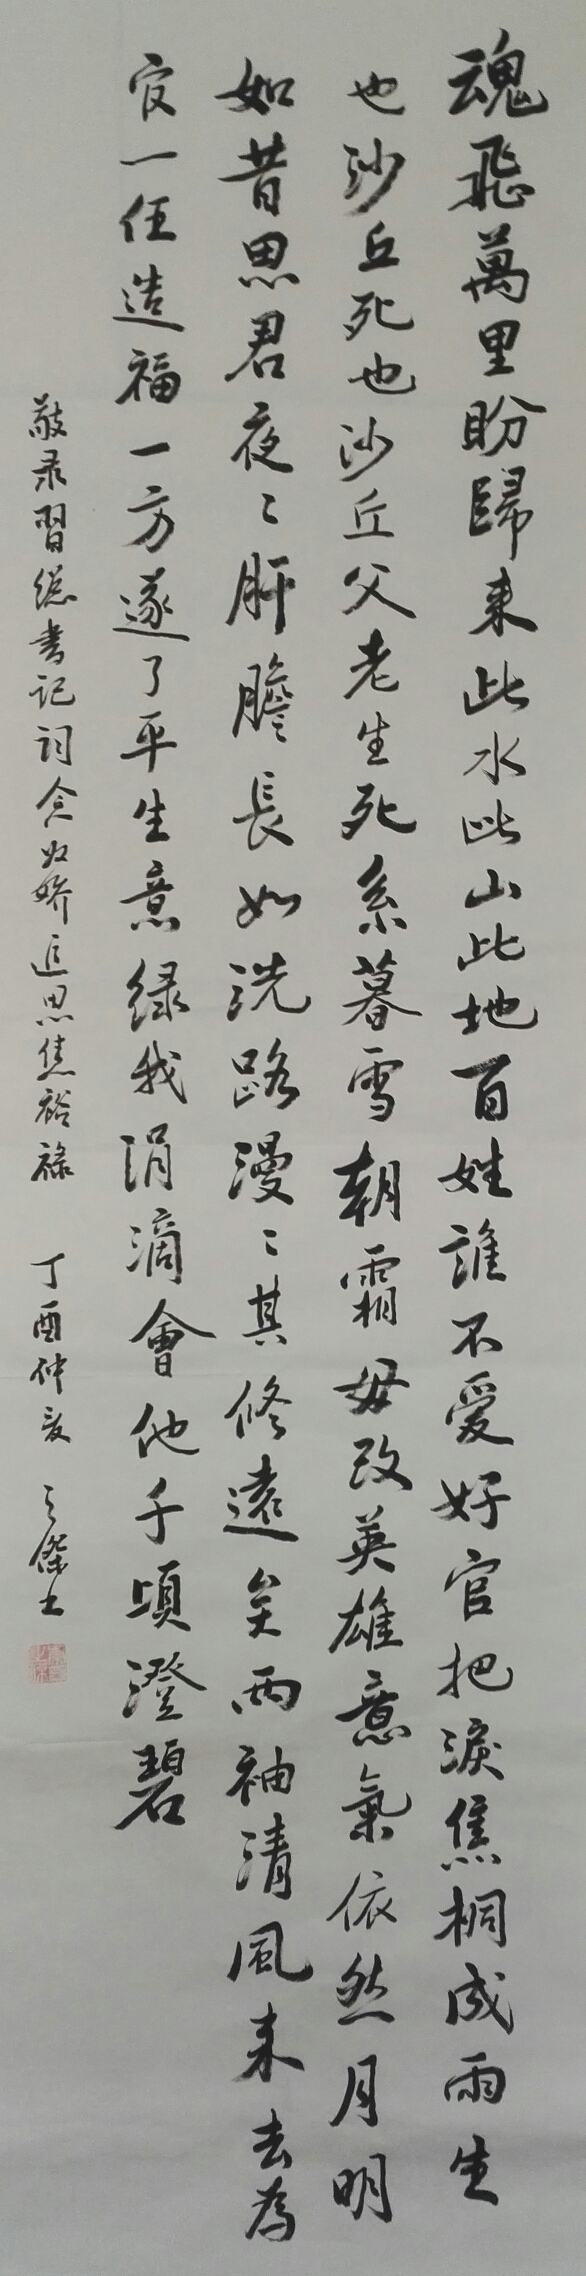 魂飛萬里盼歸来此水此山此地百姓誰不愛好官把淚焦桐成雨生
也沙丘死也沙丘父老生死系暮雪朝霜毋改英雄意氣依然月明
如昔思君夜〻肝膽長如洗路漫〻其修遠矣兩袖清風来去為
官一任造福一方遂了平生意绿我涓滴會他千頃澄碧
敬录習總书记词念奴娇追思焦裕禄 丁酉仲夏 之傑士